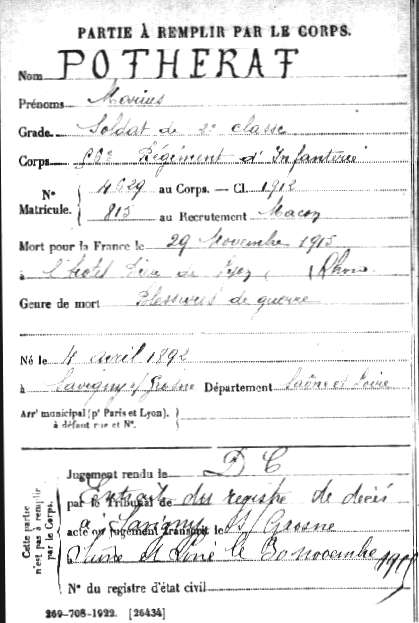 PARTIE À REMPLIR PAR LE CORPS.
Nom POTHERAT
Prénoms Marius
Grade Soldat de 2e classe
Corps Régiment d'Infanterie
N° Matricule. { 4629 au Corps. — Cl. 1912
815 au Recrutement Macon
Mort pour la France le 29 Novembre 1915
à l'hotel de Lyon, (Rhone
Genre de mort Blessures de guerre
Né le 4 avril 1892
à Savigny s/ Grosne Département Saône et Loire
Arr' municipal (p' Paris et Lyon). }
à défaut rue et N°.
Cette partie n'est pas à remplir par le Corps.
Jugement rendu le D C
par le Tribunal de Extrait du registre de décès
acte ou jugement transcrit le à Savigny S/ Grosne
à Saône et Loire le 30 novembre 1915
N° du registre d'état civil
269-708-1922. [26434]